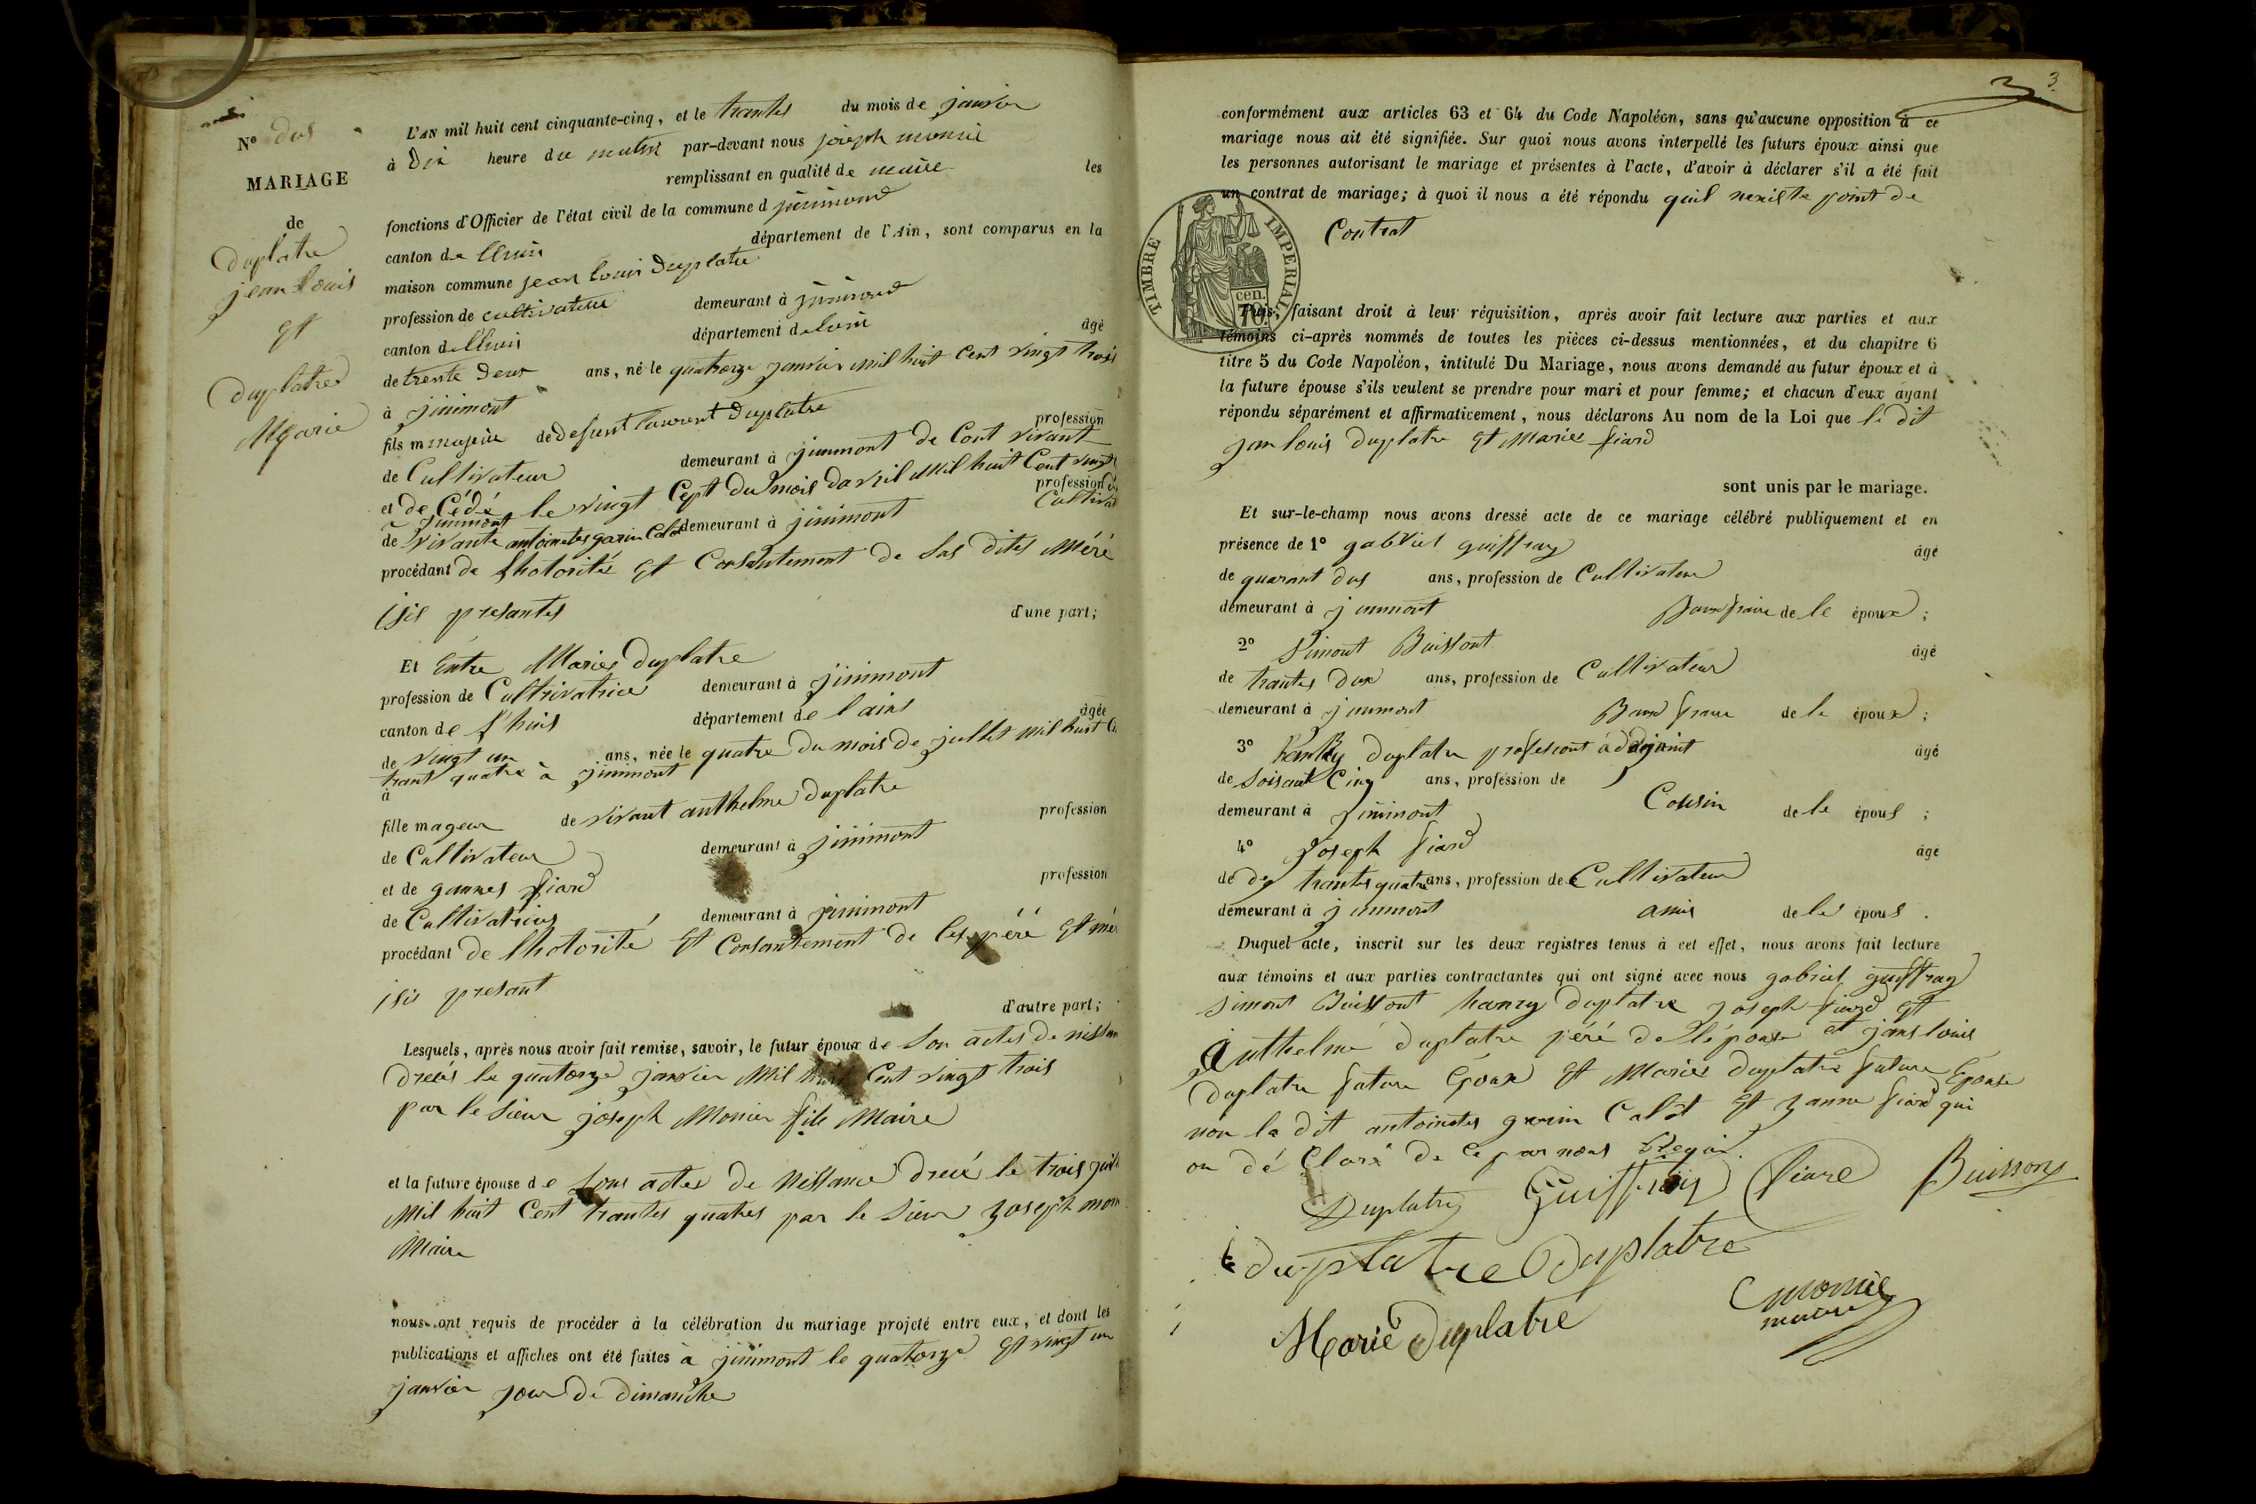 N° dos
MARIAGE
de
Duplatre
jean Louis
Et
Duplatre
Marie
L'AN mil huit cent cinquante-cinq, et le trantes du mois de janvier
à Dix heure du matin par-devant nous joseph monié
remplissant en qualité de maire les
fonctions d'Officier de l'état civil de la commune d jinimond
canton de lhuis département de l'Ain, sont comparus en la
maison commune jean louis Duplatre
profession de cultivateur demeurant à jinimond
canton de lhuis département de lain âgé
de trente deux ans, né le quatorze janvier mil huit cent vingt trois
à jinimont
fils m majeur de defunt laurent Duplatre profession
de Cultivateur demeurant à jinimont de Cont vivant
et de Cédé le vingt Cept du mois davril Mil huit Cent vingt
à jinimont profession de
de vivante antoinetes garin Calot demeurant à jinimont Cultiva
procédant de lhotorités Et Consantement de Sas dites Méré
isis presantes d'une part;
Et Entre Maries Duplatre
profession de Cultrivatrice demeurant à jinimont
canton de l'huis département de l'ains âgée
de vingt un ans, née le quatre du mois de juillet mil huit C
trant quatre à jinimont
à
fille mageur de vivant anthelme Duplatre profession
de Cultivateur demeurant à jinimont
et de gannes fiard profession
de Cultivatrices demeurant à jinimont
procédant de lhotorité Et Consantement de Ces péré Et mér
isis presant
d'autre part;
Lesquels, après nous avoir fait remise, savoir, le futur époux de Son actes de nissan
Dreés le quatorze janvier Mil huit Cent vingt trois
par le Sieur joseph Monier fils Maire
et la future épouse de Sons actes de Nissance dreié le trois juil
Mil huit Cent trantes quatres par le Sieur Joseph mon
Maire
nous ont requis de procéder à la célébration du mariage projeté entre eux, et dont les
publications et affiches ont été faites à jinimont le quatorze Et vingt un
janvier jour De dimanche
3
3
conformément aux articles 63 et 64 du Code Napoléon, sans qu'aucune opposition à ce
mariage nous ait été signifiée. Sur quoi nous avons interpellé les futurs époux ainsi que
les personnes autorisant le mariage et présentes à l'acte, d'avoir à déclarer s'il a été fait
un contrat de mariage; à quoi il nous a été répondu quil nexiste point de
Contrat
TIMBRE IMPERIAL
70 cen.
Puis, faisant droit à leur réquisition, après avoir fait lecture aux parties et aux
témoins ci-après nommés de toutes les pièces ci-dessus mentionnées, et du chapitre 6
titre 5 du Code Napoléon, intitulé Du Mariage, nous avons demandé au futur époux et à
la future épouse s'ils veulent se prendre pour mari et pour femme; et chacun d'eux ayant
répondu séparément et affirmativement, nous déclarons Au nom de la Loi que le dit
jan louis Duplatre Et Maries fiard
sont unis par le mariage.
Et sur-le-champ nous avons dressé acte de ce mariage célébré publiquement et en
présence de 1° gabriel guiffray âgé
de quarant dus ans, profession de Cultivateur
demeurant à jinimont Baux fraire de le époux;
2° Simont Buissont âgé
de trantes dux ans, profession de Cultivateur
demeurant à jinimont Baux fraire de le époux;
3° hanry Duplatre profesiont adjoint âgé
de Soisant Cinq ans, profession de
demeurant à jinimont Cousin de le épous;
4° Joseph fiard âgé
de de trantes quatre ans, profession de Cultivateur
demeurant à jinimont amis de les épous.
Duquel acte, inscrit sur les deux registres tenus à cet effet, nous avons fait lecture
aux témoins et aux parties contractantes qui ont signé avec nous gabriel guiffray
Simont Buissont hanry Duplatre Joseph fiard Et
Anthelme duplatre péré De lépouse et jans louis
Duplatre future époux Et Maries Duplatre future Epouse
non la dit antoinetes garin Calot Et Janne fiard qui
on déClaré De Ce par nous
Duplatre Guiffray fiare Buisson
duplatre Duplatre
Monié
maire
Marie Duplatre